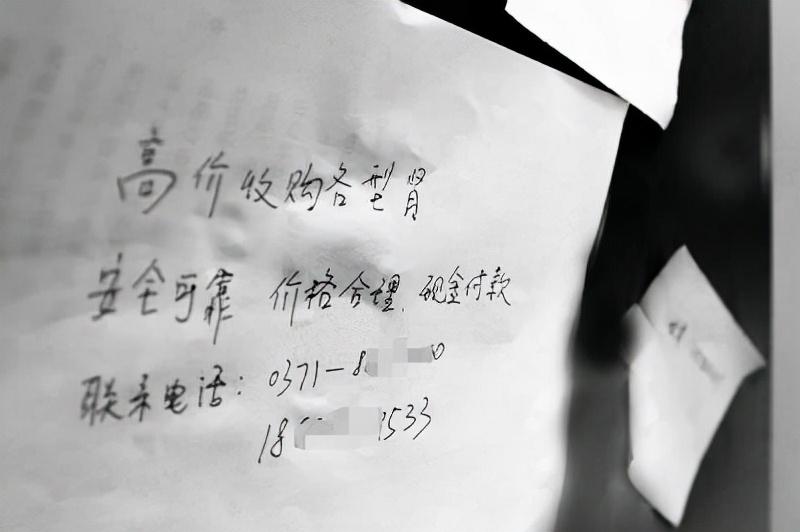 高价收购各型肾
安全可靠 价格合理.现金付款
联系电话:0371-8 0
18 1533